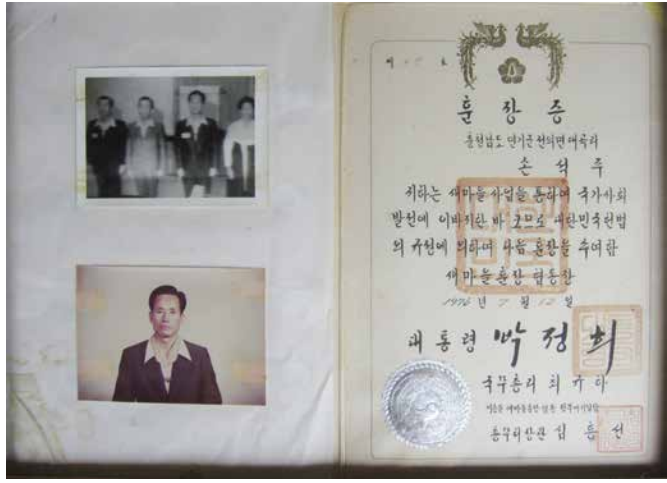 제 호
훈장증
충청남도 연기군 전의면 대곡리
손석주
귀하는 새마을 사업을 통하여 국가사회
발전에 이바지한 바 크므로 대한민국헌법
의 규정에 의하여 다음 훈장을 수여함
새마을훈장 협동장
1976년 7월 12일
대통령 박정희
국무총리 최규하
총무처장관 심흥선